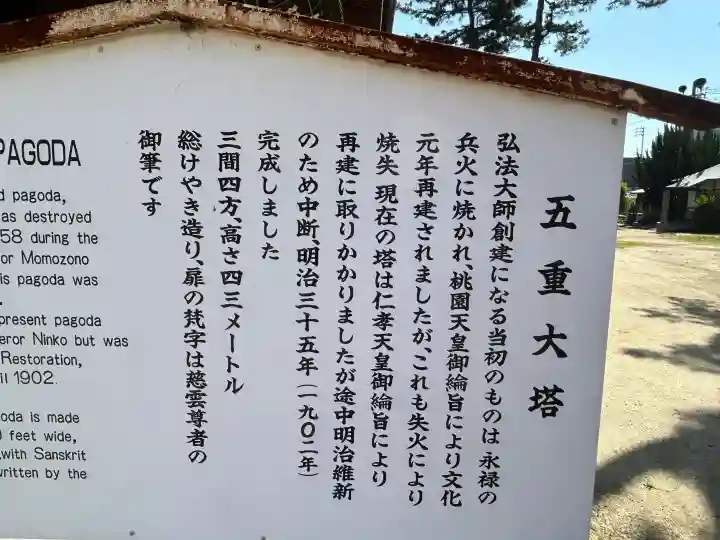 五重大塔
弘法大師創建になる当初のものは永禄の
兵火に焼かれ、桃園天皇御綸旨により文化
元年再建されましたが、これも失火により
焼失、現在の塔は仁孝天皇御綸旨により
再建に取りかかりましたが途中明治維新
のため中断、明治三十五年(一九〇二年)
完成しました
三間四方、高さ四三メートル
総けやき造り、扉の梵字は慈雲尊者の
御筆です
PAGODA
d pagoda,
as destroyed
58 during the
or Momozono
is pagoda was
present pagoda
eror Ninko but was
Restoration,
il 1902.
oda is made
feet wide,
,with Sanskrit
written by the